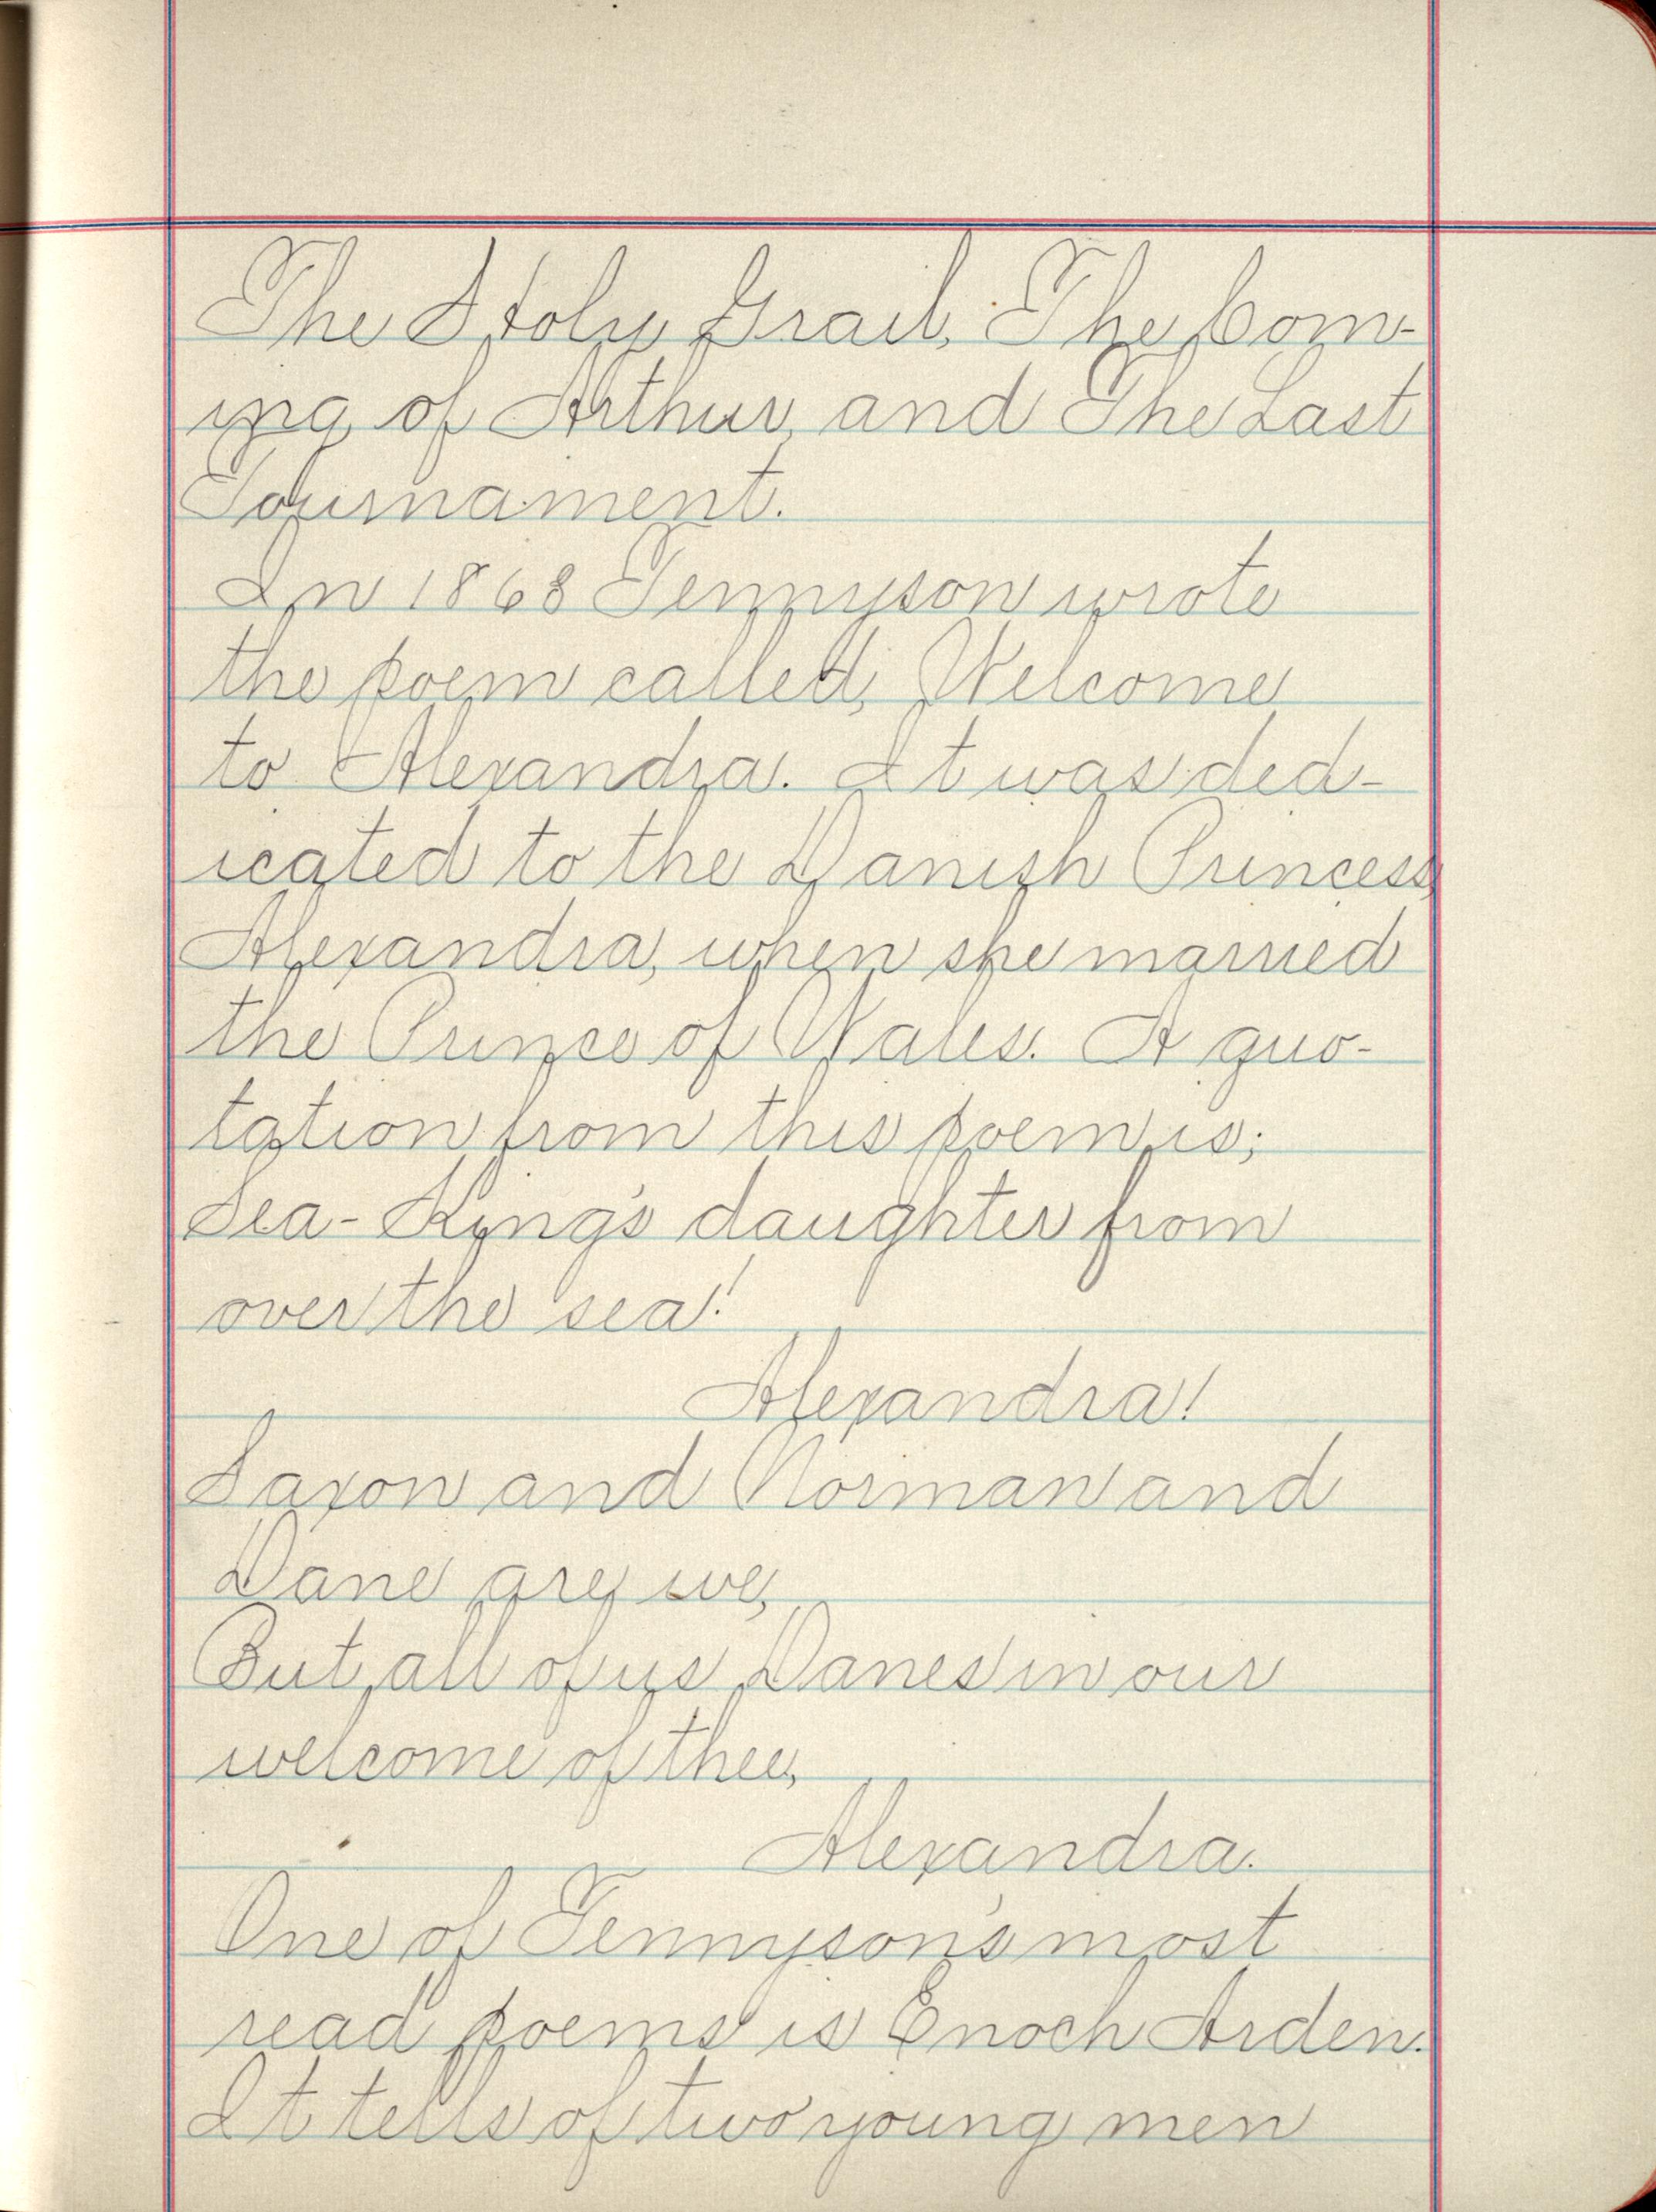 The Holy Grail, The Com-
ing of Arthur, and The Last
Tournament.
In 1863 Tennyson wrote
the poem called, Welcome
to Alexandra. It was ded-
icated to the Danish Princess,
Alexandra, when she married
the Prince of Wales. A quo-
tation from this poem is;
Sea-King's daughter from
over the sea!
Alexandra!
Saxon and Norman and
Dane are we,
But all of us Danes in our
welcome of thee,
Alexandra.
One of Tennyson's most
read poems is Enoch Arden.
It tells of two young men